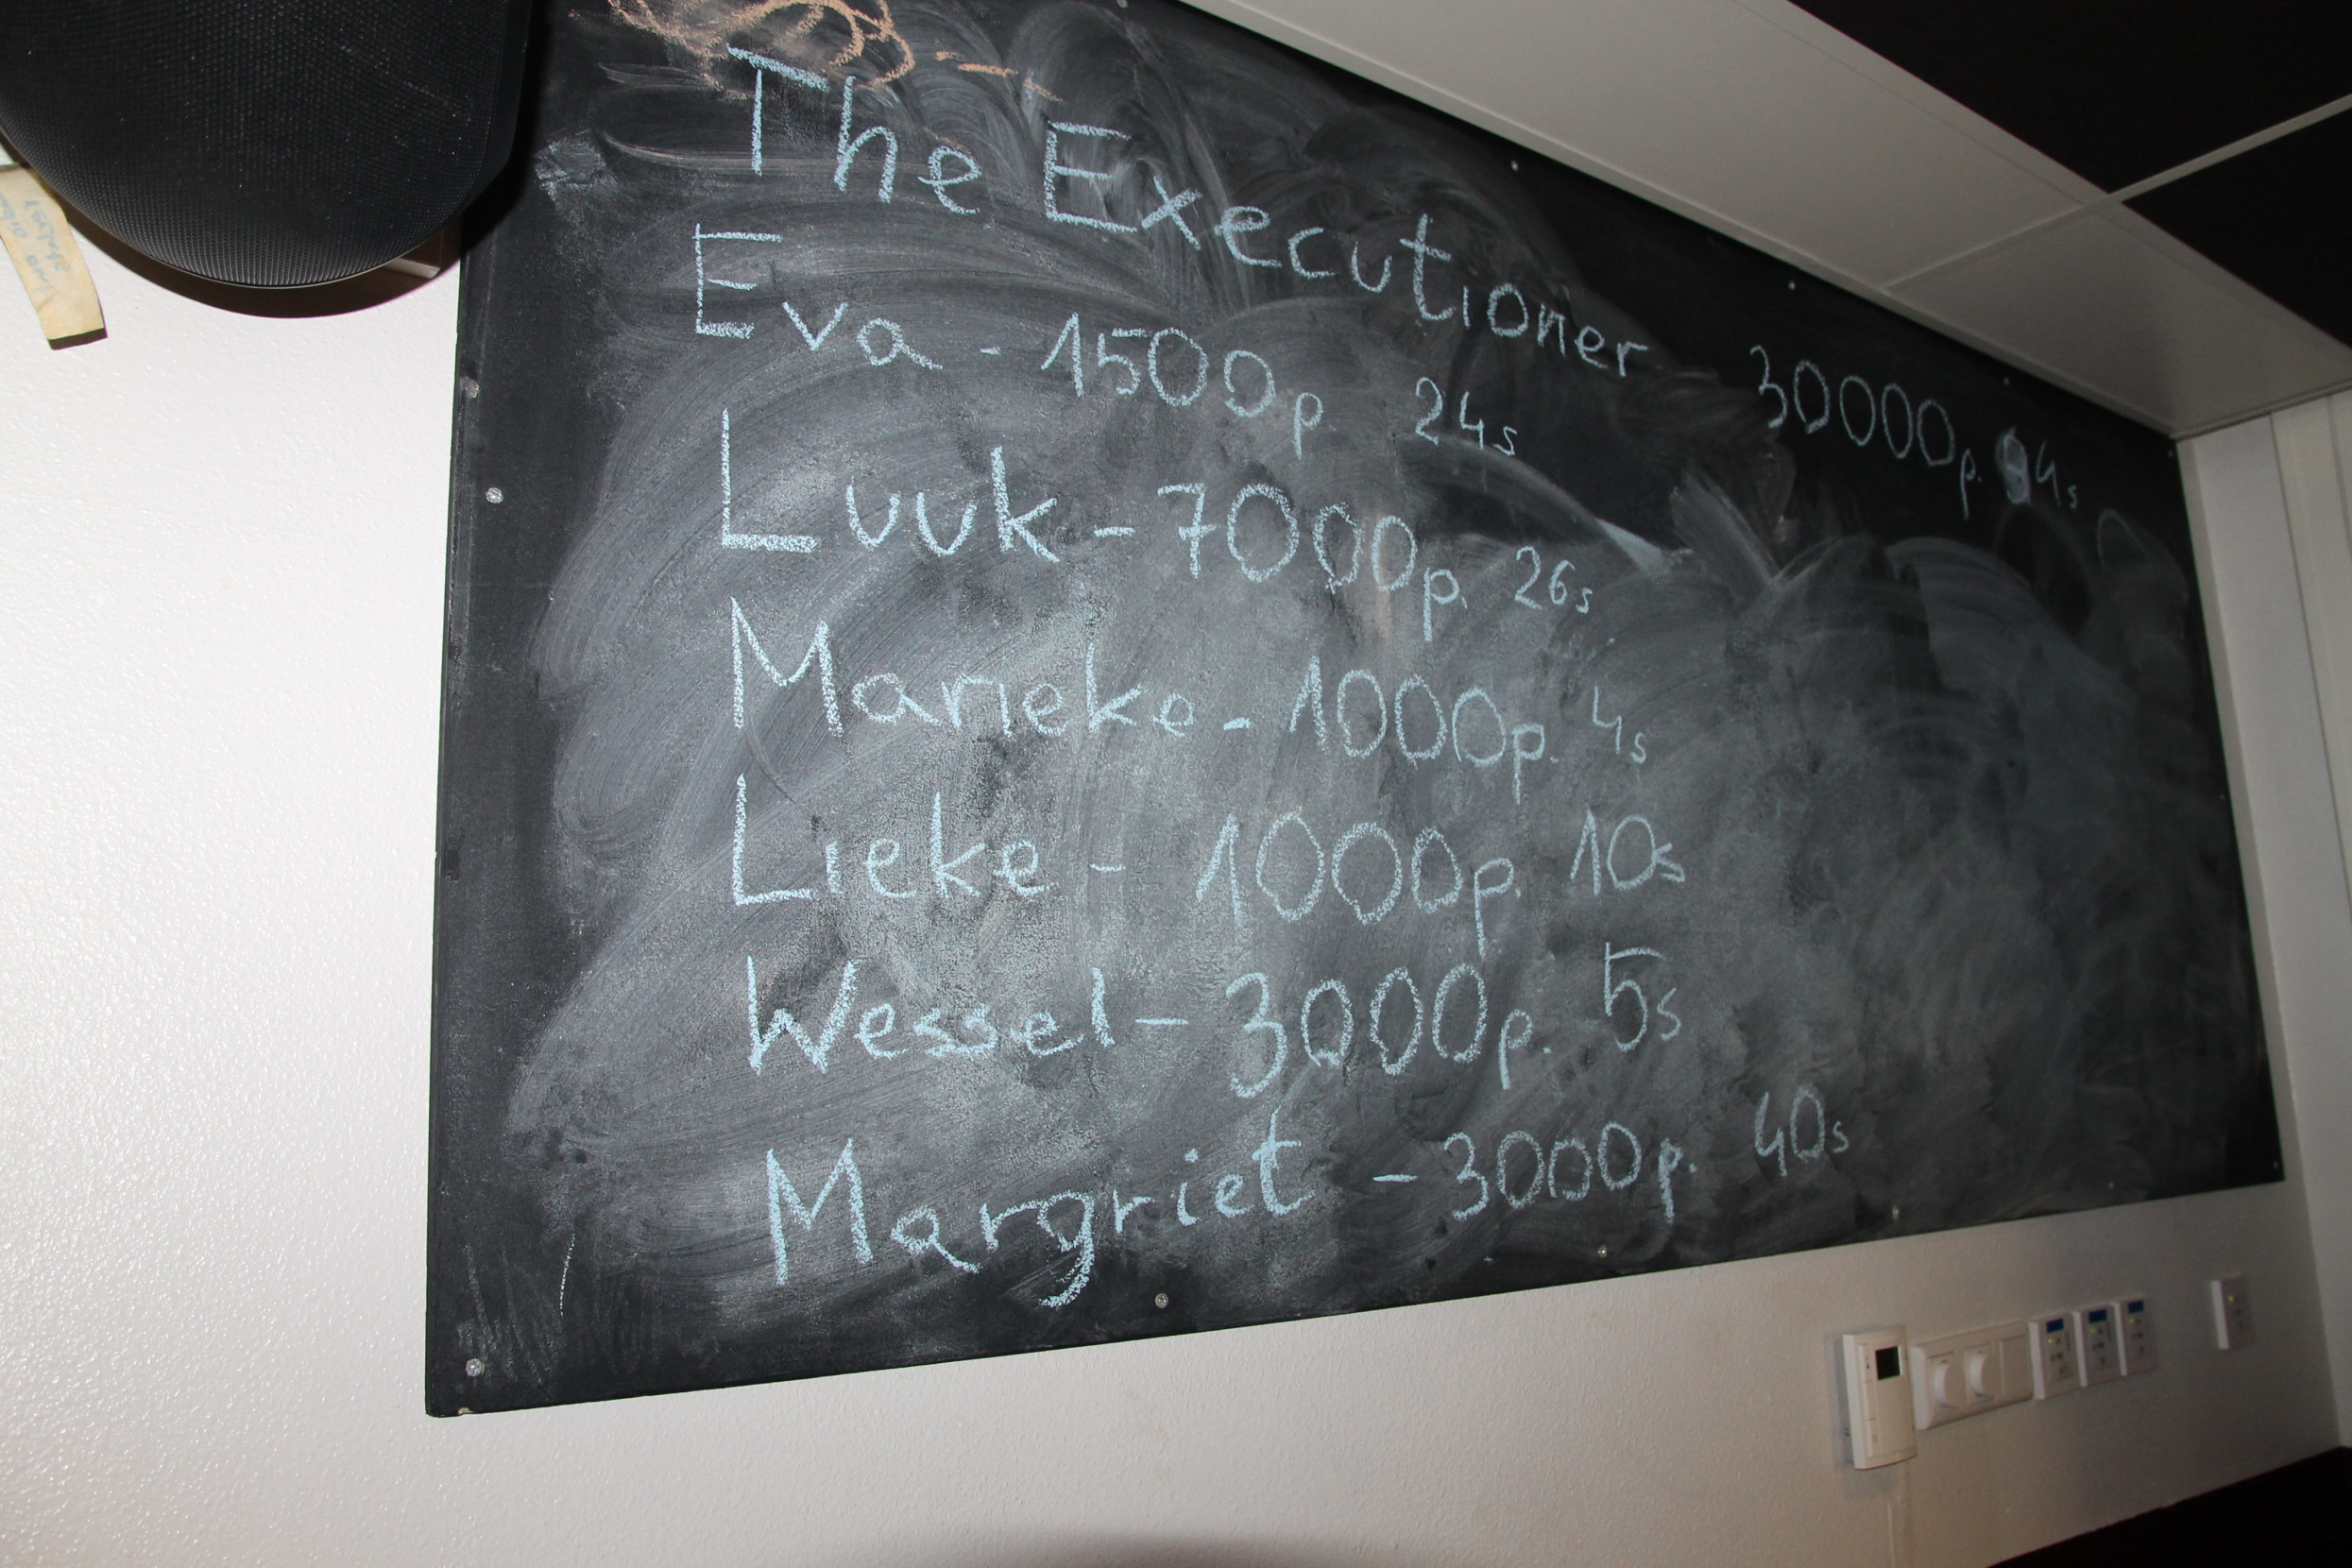 The Executioner - 30000p. 94s
Eva - 1500p 24s
Luuk - 7000p. 26s
Marieke - 1000p. 4s
Lieke - 1000p. 10s
Wessel - 3000p. 5s
Margriet - 3000p. 40s